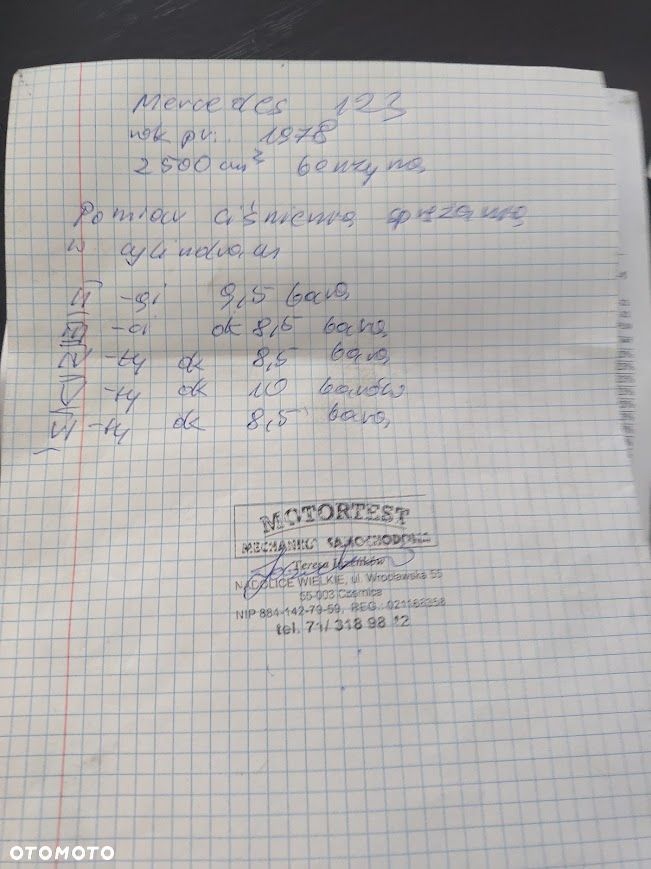 Mercedes 123
rok pr. 1978
2500 cm³ benzyna
Pomiar ciśnienia sprężania
w cylindrach
II -gi 9,5 bara
III -ci ok 8,5 bara
-ty ok 8,5 bara
-ty ok 10 barów
-ty ok 8,5 bara
MOTORTEST
MECHANIKA SAMOCHODOWA
Teresa
NADOLICE WIELKIE, ul. Wrocławska 55
55-003 Czernica
NIP 884-142-79-59, REG.: 021186358
tel. 71/ 318 98 12
OTOMOTO